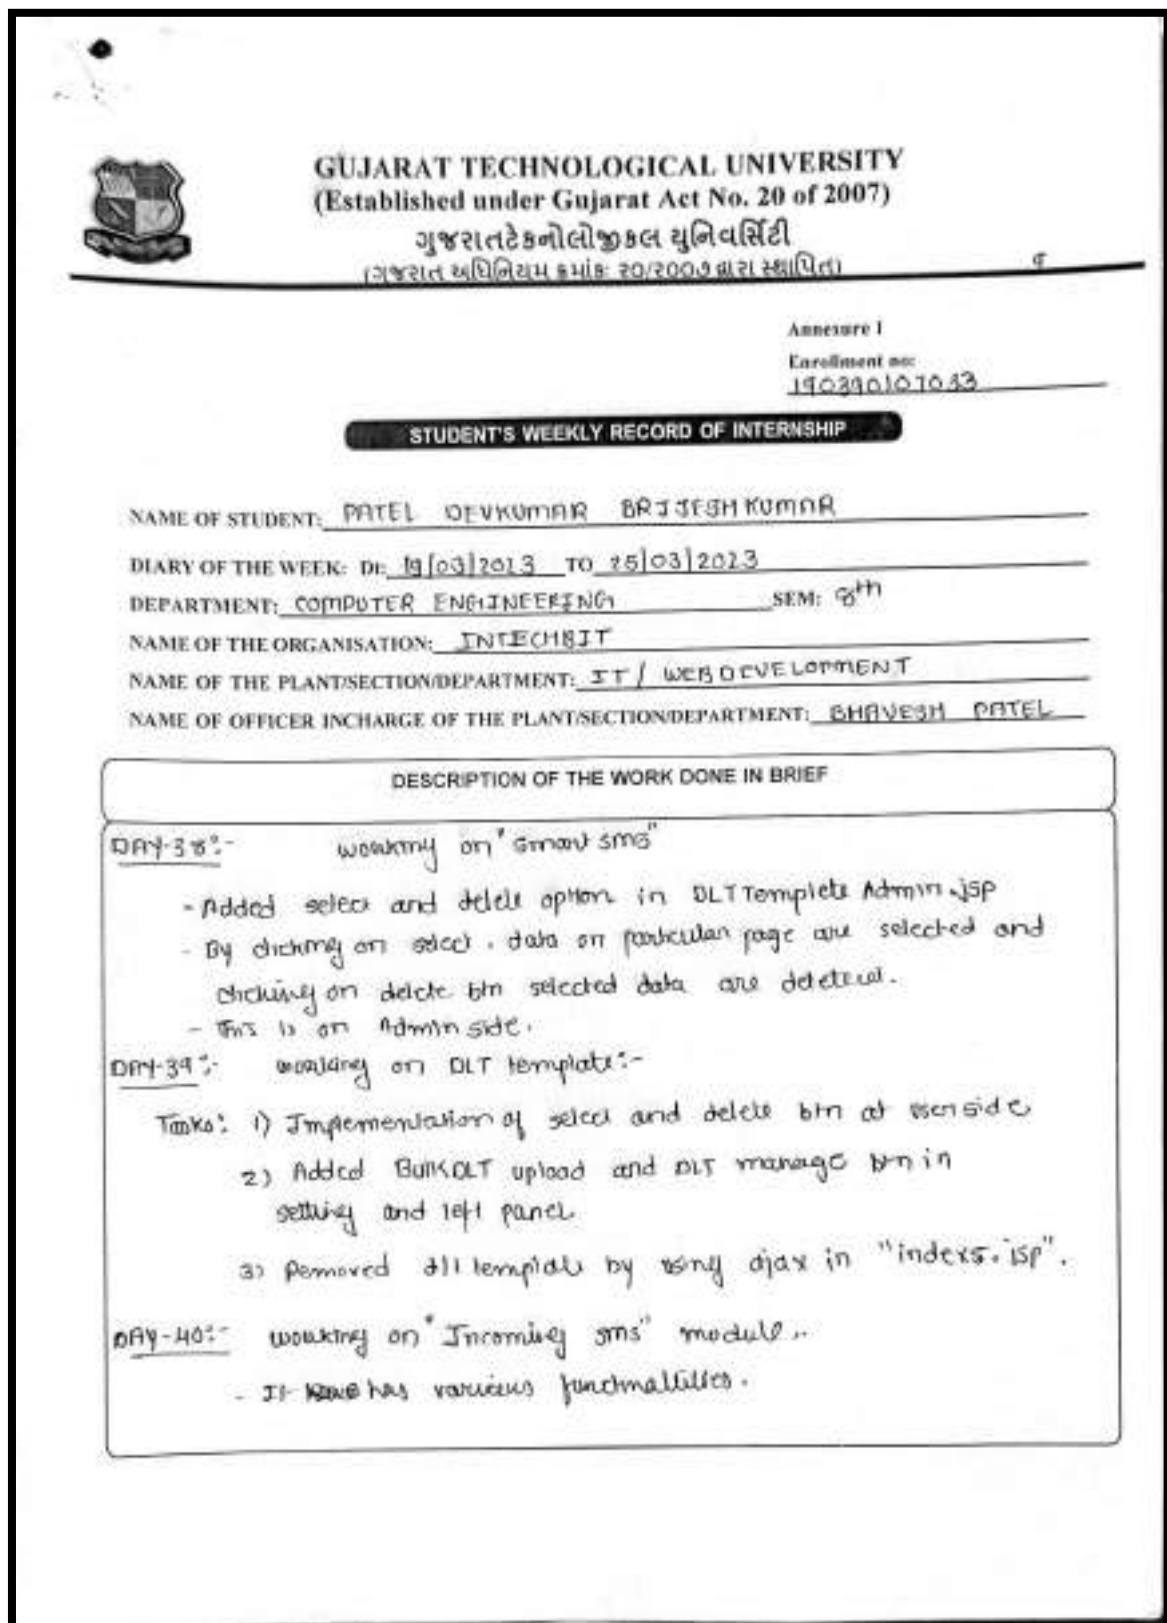 GUJARAT TECHNOLOGICAL UNIVERSITY
(Established under Gujarat Act No. 20 of 2007)
ગુજરાતટેકનોલોજીકલ યુનિવર્સિટી
(ગુજરાત અધિનિયમ ક્રમાંક: ૨૦/૨૦૦૭ દ્વારા સ્થાપિત)
Annexure I
Enrollment no:
190390107033
STUDENT'S WEEKLY RECORD OF INTERNSHIP
NAME OF STUDENT: PATEL DEVKUMAR BRIJESHKUMAR
DIARY OF THE WEEK: Dt: 19/03/2023 TO 25/03/2023
DEPARTMENT: COMPUTER ENGINEERING SEM: 8th
NAME OF THE ORGANISATION: INTECHBIT
NAME OF THE PLANT/SECTION/DEPARTMENT: IT / WEB DEVELOPMENT
NAME OF OFFICER INCHARGE OF THE PLANT/SECTION/DEPARTMENT: BHAVESH PATEL
DESCRIPTION OF THE WORK DONE IN BRIEF
DAY-38:- working on "Smart sms"
- Added select and delete option in DLTTemplete Admin.jsp
- By clicking on select, data on particular page are selected and
clicking on delete btn selected data are deteted.
- This is on Admin side.
DAY-39:- working on DLT template:-
Tasks: 1) Impementation of select and delete btn at user side
2) Added BulkDLT upload and DLT manage btn in
setting and left panel
3) Removed all template by using ajax in "index5.jsp".
DAY-40:- working on "Incoming sms" module..
- It has various functinallities.